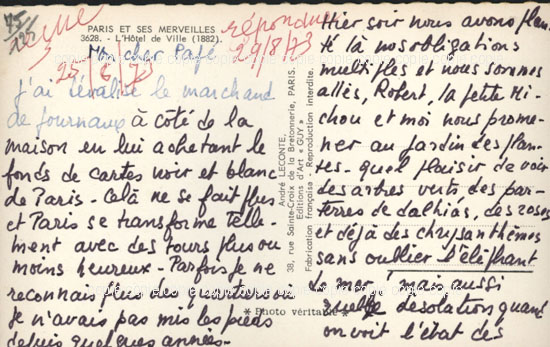 75/127
reçue
25/6/73
répondu
29/8/73
PARIS ET SES MERVEILLES
3628. - L'Hôtel de Ville (1882).
Mon cher Pafe
j'ai dévalisé le marchand
de journaux à côté de la
maison en lui achetant le
fonds de cartes noir et blanc
de Paris - Celà ne se fait plus
et Paris se transforme telle-
ment avec des tours plus ou
moins heureux - Parfois je ne
reconnais plus les quartiers où
je n'avais pas mis les pieds
depuis quelques années -
André LECONTE,
38, rue Sainte-Croix de la Bretonnerie, PARIS.
Editions d'Art « GUY »
Fabrication française - Reproduction interdite.
* Photo véritable *
Hier soir nous avons plan-
té là nos obligations
multiples et nous sommes
allés, Robert, la petite Mi-
chou et moi nous prome-
ner au jardin des plan-
tes - quel plaisir de voir
des arbres verts des par-
terres de dalhias, des roses
et déjà des chrysanthèmes
sans oublier l'éléphant
de mer ! mais aussi
quelle désolation quand
on voit l'état des